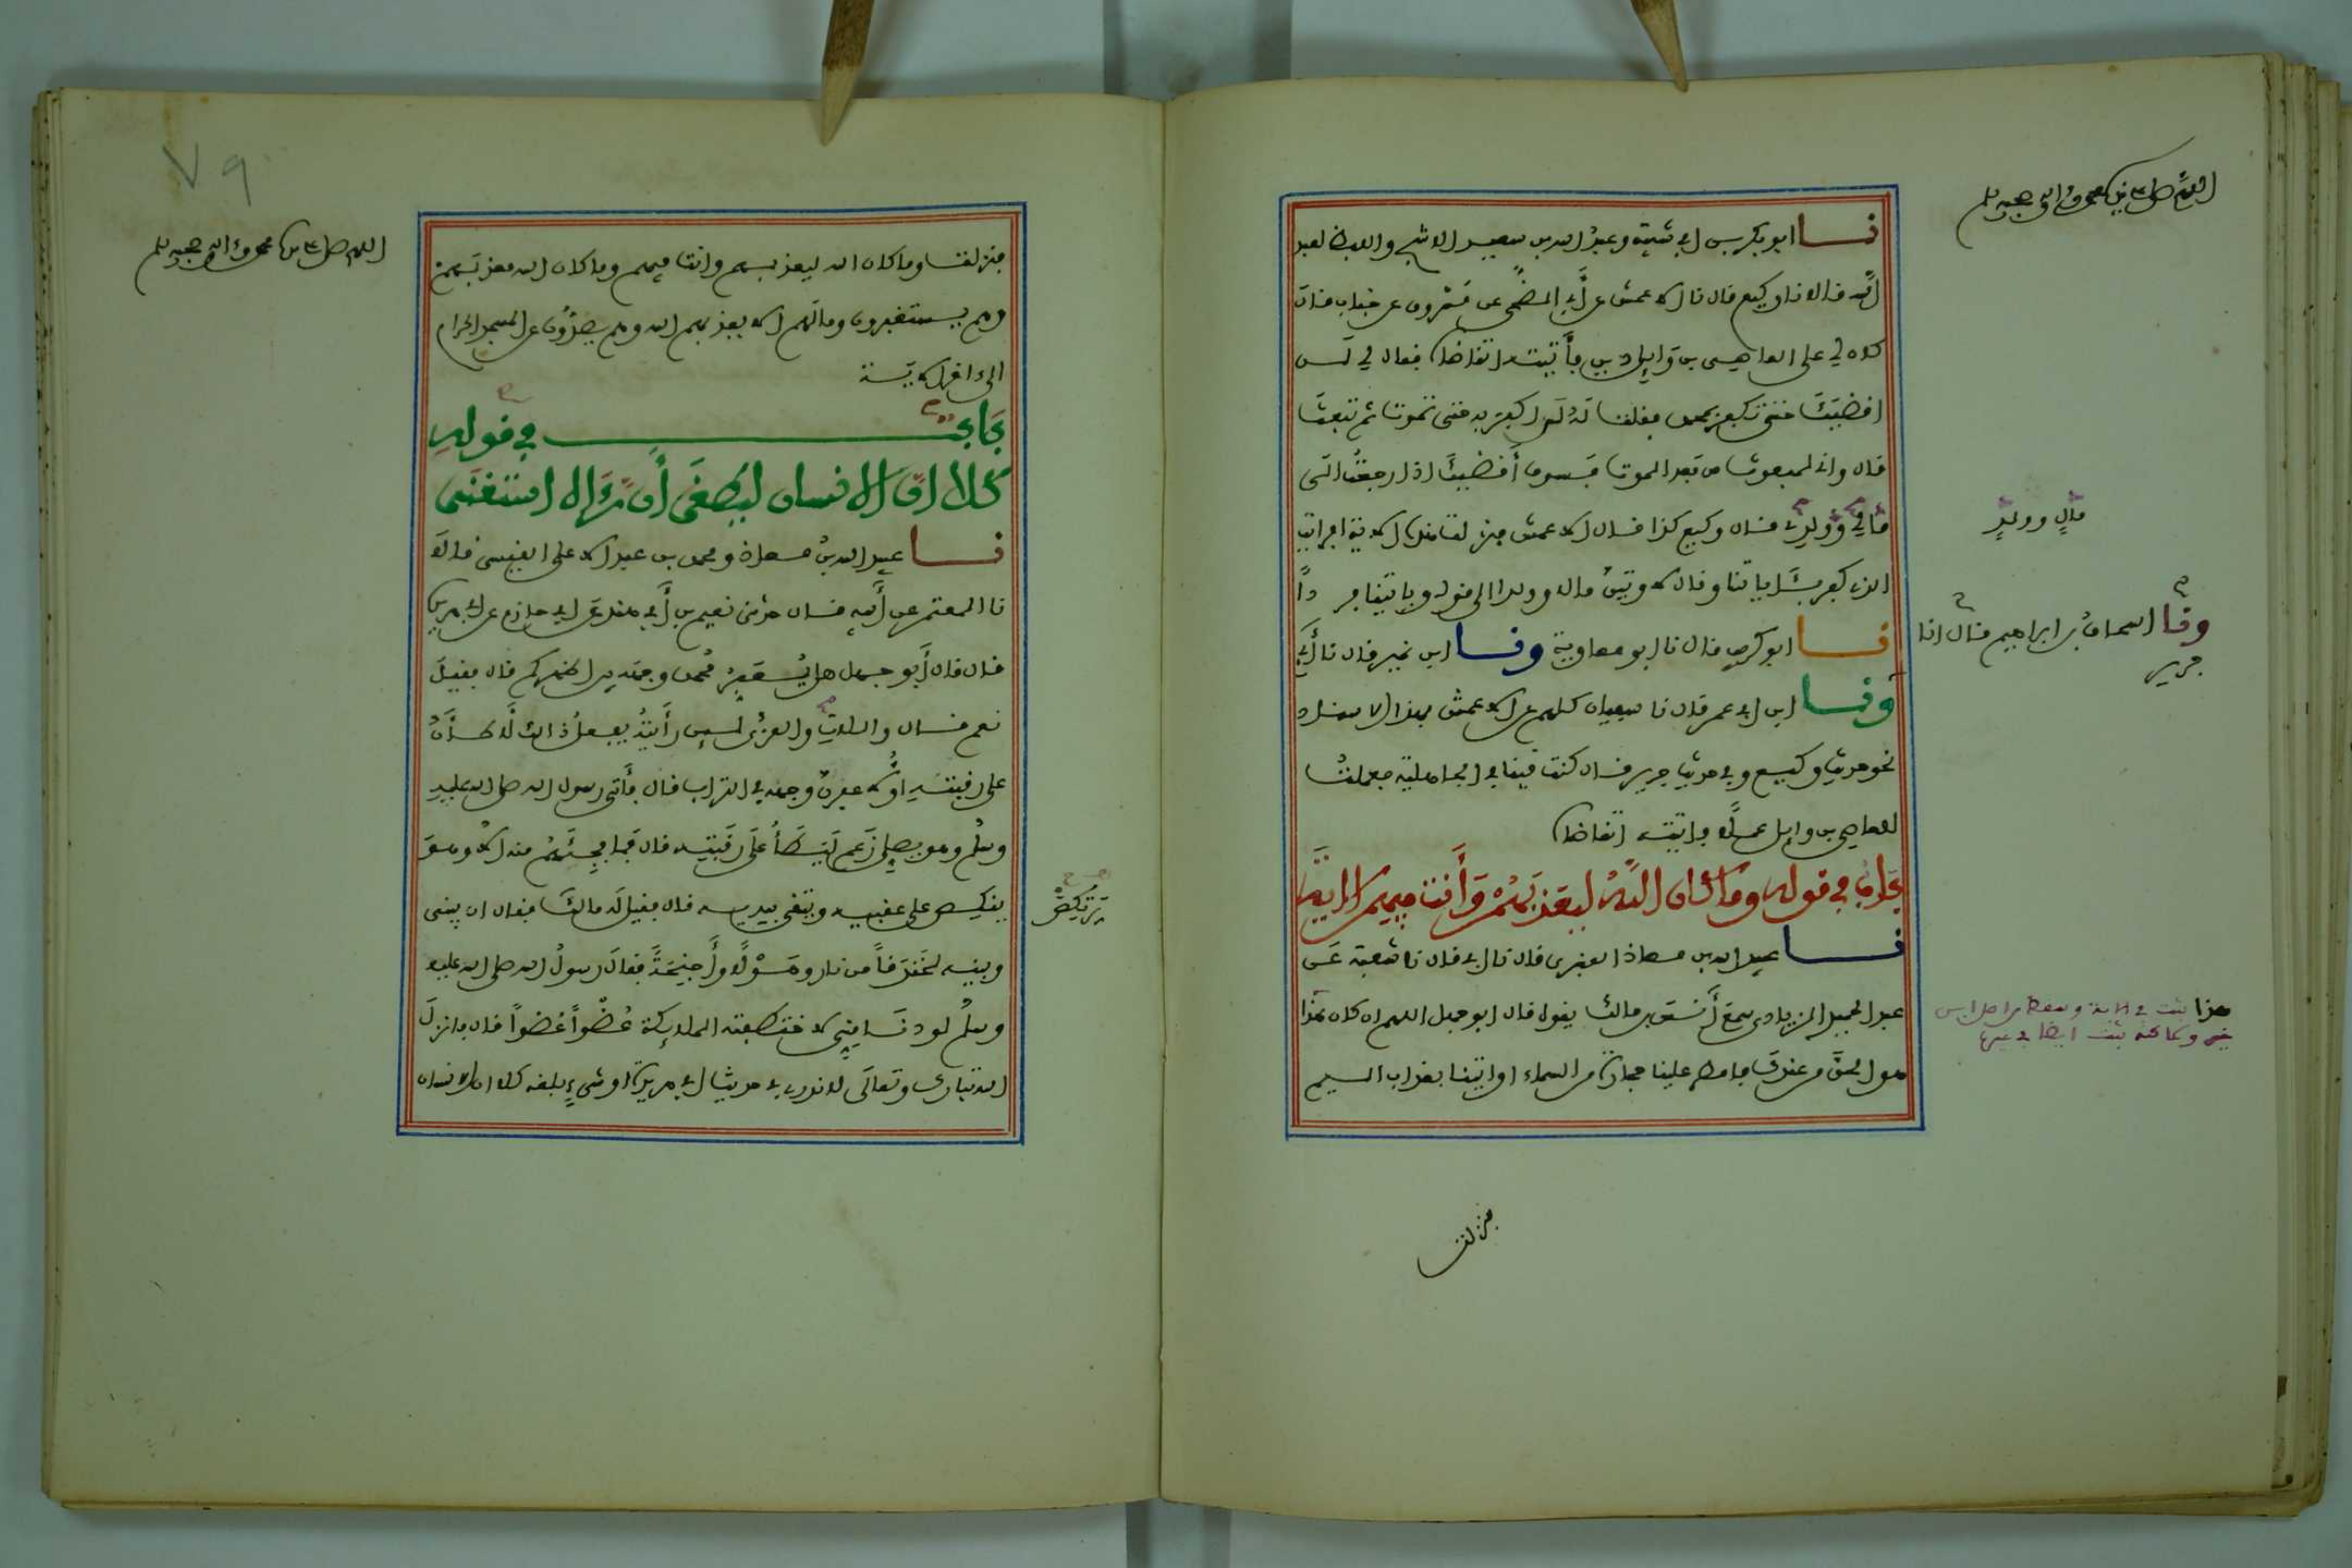 اللهم صل على سيدنا محمد وءاله وصحبه وسلم
نا ابو بكر بن ابي شيبة وعبد الله بن سعيد الاشج واللفظ لعبد
الله قالا نا وكيع قال نا الاعمش عن أبي الضحى عن مسروق عن خباب قال
كان لي على العاصي بن وايل دين فأتيته اتقاضاه فقال لي لن
اقضيك حتى تكفر بمحمد فقلت له لن اكفر به حتى تموت ثم تبعث
قال واني لمبعوث من بعد الموت فسوف أقضيك اذا رجعت الى
مالي وولدي قال وكيع كذا قال الاعمش فنزلت هذه الاية افرايت
مال وولد
الذي كفر بـاياتنا وقال لاوتين مالا وولدا الى قوله وياتينا فردًا
نا ابو كريب قال نا ابو معاوية ونا ابن نمير قال نا أبي
ونا اسحاق بن ابراهيم قال انا
جرير
ونا ابن ابي عمر قال نا سفيان كلهم عن الاعمش بهذا الاسناد
نحو حديث وكيع وفي حديث جرير قال كنت قينا في الجاهلية فعملت
للعاصي بن وايل عملا فاتيته اتقاضاه
باب في قوله وما كان الله ليعذبهم وأنت فيهم الاية
نا عبيد الله بن معاذ العنبري قال نا ابي قال نا شعبة عن
عبد الحميد الزيادي سمع أنس بن مالك يقول قال ابو جهل اللهم ان كان هذا
هذا ثبت في
هو الحق من عندك فامطر علينا حجارة من السماء او ايتنا بعذاب اليم
فنزلت
٧٩
اللهم صل على سيدنا محمد وءاله وصحبه وسلم
فنزلت وما كان الله ليعذبهم وانت فيهم وما كان الله معذبهم
وهم يستغفرون وما لهم الا يعذبهم الله وهم يصدون عن المسجد الحرام
الى ءاخر الاية
باب في قوله
كلا ان الانسان ليطغى أن رءاه استغنى
نا عبيد الله بن معاذ ومحمد بن عبد الاعلى القيسي قالا
نا المعتمر عن أبيه قال حدثني نعيم بن أبي هند عن ابي حازم عن ابي هريرة
قال قال أبو جهل هل يعفر محمد وجهه بين اظهركم قال فقيل
نعم قال واللات والعزى لئن رأيته يفعل ذالك لاطأن
على رقبته او لاعفرن وجهه في التراب قال فأتى رسول الله صلى الله عليه
وسلم وهو يصلي زعم ليطأ على رقبته قال فما فجئهم منه الا وهو
ينكص على عقبيه ويتقي بيديه قال فقيل له مالك فقال ان بيني
وبينه لخندقاً من نار وهولا وأجنحة فقال رسول الله صلى الله عليه
وسلم لو دنا مني لاختطفته الملايكة عضواً عضواً قال فانزل
الله تبارك وتعالى لا ندري في حديث ابي هريرة او شيء بلغه كلا ان الانسان